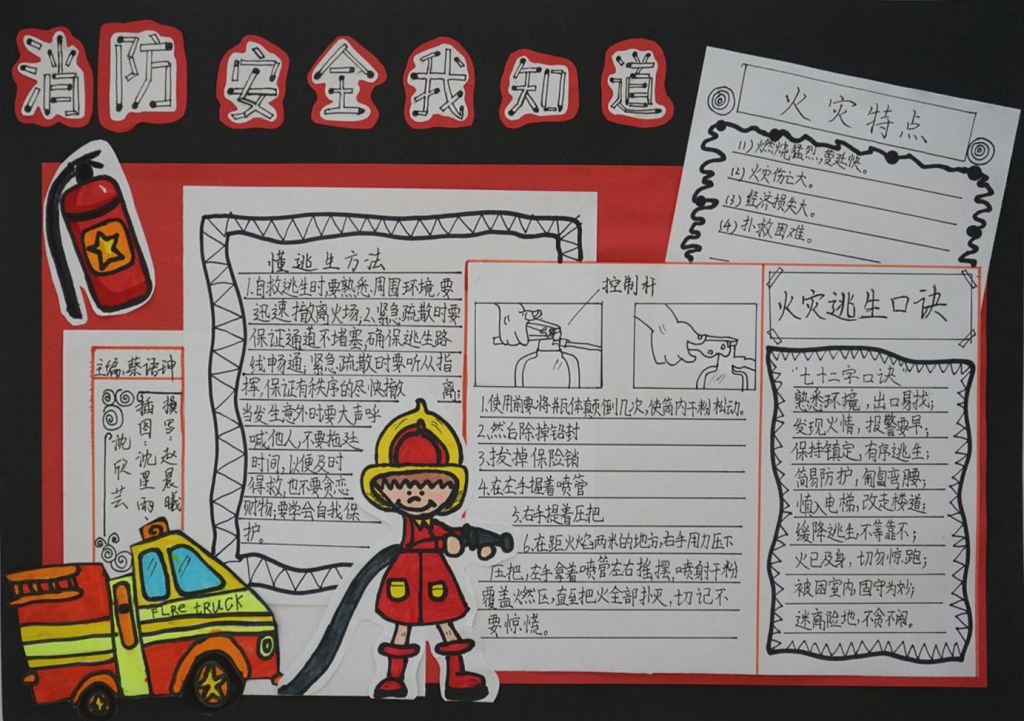 消防安全我知道
火灾特点
(1)燃烧猛烈,蔓延快。
(2)火灾伤亡大。
(3)经济损失大。
(4)扑救困难。
懂逃生方法
1.自救逃生时要熟悉周围环境,要
迅速撤离火场,2、紧急疏散时要
保证通道不堵塞,确保逃生路
线畅通,紧急疏散时要听从指
挥,保证有秩序的尽快撤离;
当发生意外时要大声呼
喊他人,不要拖延
时间,以便及时
得救,也不要贪恋
财物;要学会自我保
护。
主编:蔡语坤
撰写:赵晨曦
插图:沈星雨
沈欣芸
FLRe tRUCK
控制杆
1.使用前要将瓶体颠倒几次,使筒内干粉松动。
2.然后除掉铅封
3.拔掉保险销
4.在左手握着喷管
5.右手提着压把
6.在距火焰两米的地方,右手用力压下
压把,左手拿着喷管左右摇摆,喷射干粉
覆盖火燃区,直至把火全部扑灭,切记不
要惊慌。
火灾逃生口诀
"七十二字口诀"
熟悉环境,出口易找;
发现火情,报警要早;
保持镇定,有序逃生;
简易防护,匍匐弯腰;
慎入电梯,改走楼道;
缓降逃生,不等靠不;
火已及身,切勿惊跑;
被困室内,固守为妙;
迷离险地,不贪不闹。